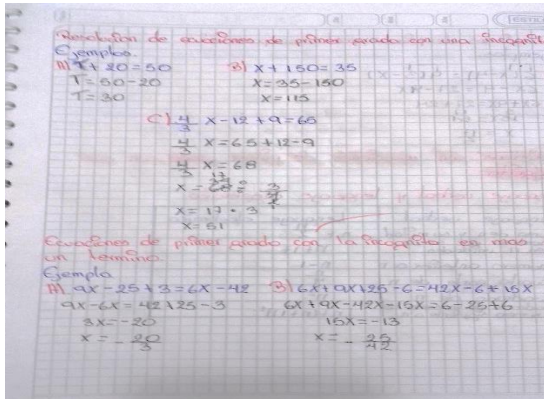 Resolución de ecuaciones de primer grado con una incógnita
Ejemplos
A) T + 20 = 50 B) x + 150 = 35
T = 50 - 20 x = 35 - 150
T = 30 x = 115
C) 4/3 x - 12 + 9 = 65
4/3 x = 65 + 12 - 9
4/3 x = 68
x = 17 • 3
x = 51
Ecuaciones de primer grado con la incognita en mas
un termino
Ejemplo
A) 9x - 25 + 3 = 6x - 42 B) 6x + 9x + 25 - 6 = 42x - 6 + 15x
9x - 6x = 42 + 25 - 3 6x + 9x - 42x - 15x = 6 - 25 + 6
3x = -20 15x = -13
x = - 20/3 x = - 25/42